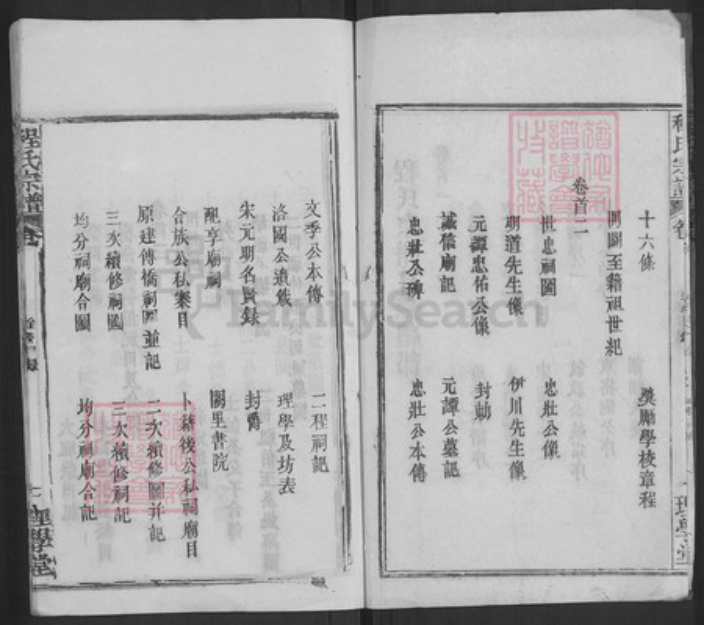 程氏宗譜
十六條
開闢至籍祖世紀
獎勵學校章程
卷首二
世忠祠圖
忠壯公像
明道先生像
伊川先生像
元譚忠佑公像
封勅
誠信廟記
元譚公墓記
忠壯公碑
忠壯公本傳
文季公本傳
二程祠記
洛國公遺蹟
理學及坊表
宋元明名賢錄
封爵
配享廟祠
闕里書院
合族公私業目
卜籍後公私祠廟目
原建傅橋祠圖並記
二次續修圖并記
三次續修祠圖
三次續修祠記
均分祠廟合圖
均分祠廟合記
程氏宗譜
七
理學堂
FamilySearch